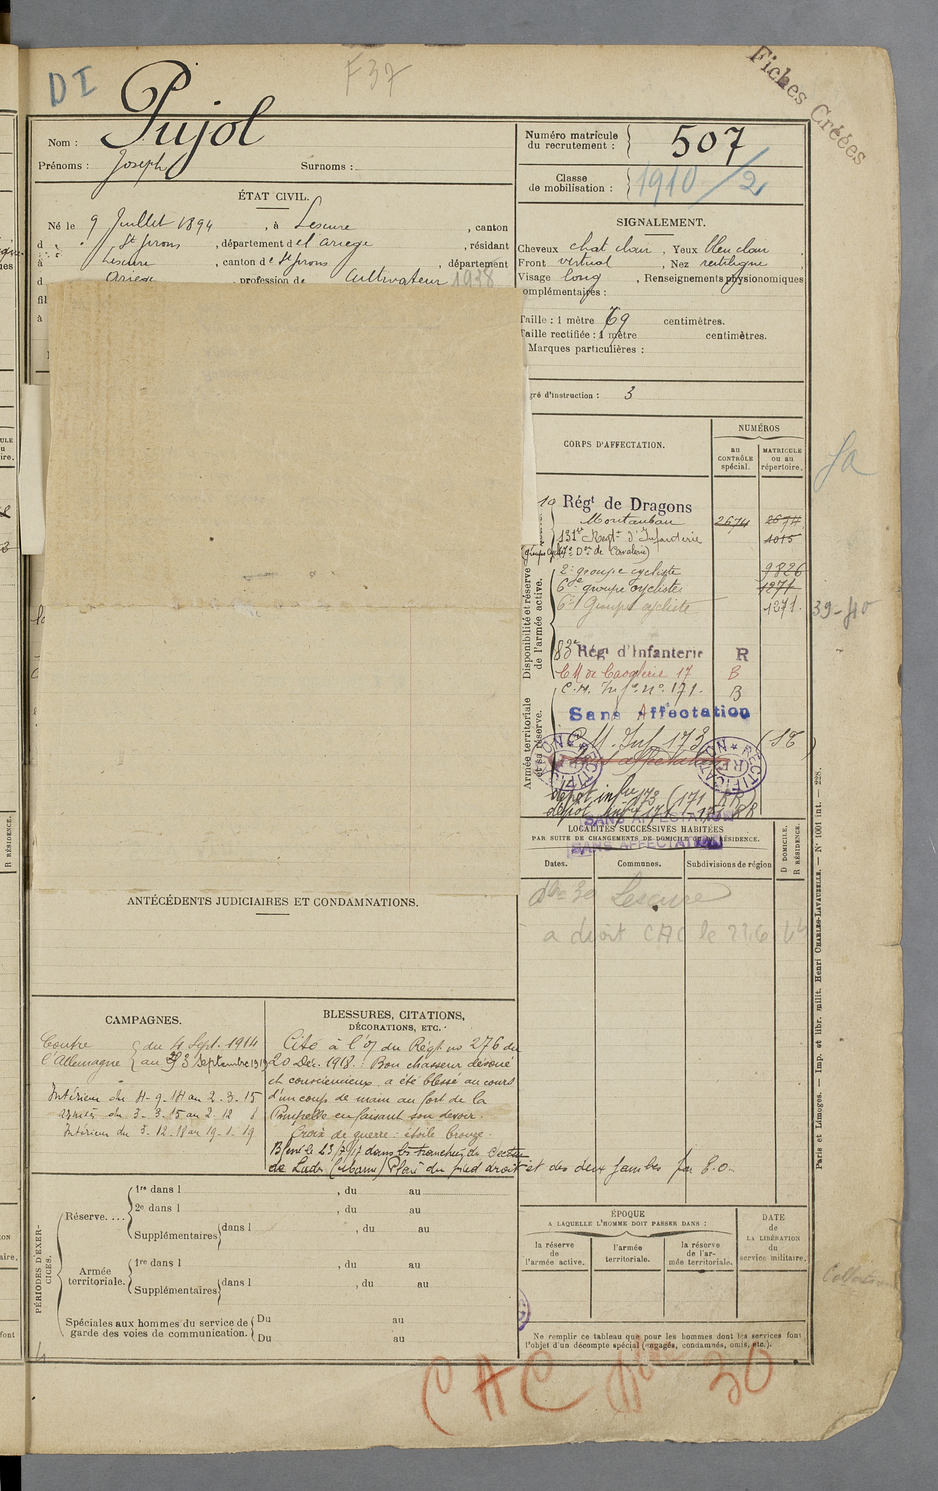 DI
F37
Fiches Créées
Nom : Pujol
Prénoms : Joseph Surnoms :
Numéro matricule du recrutement : 507
Classe de mobilisation : 1910/2
ÉTAT CIVIL.
Né le 9 Juillet 1894, à Lescure, canton
d St Girons, département de l'Ariège, résidant
à Lescure, canton de St Girons, département
d Ariège, profession de Cultivateur 1938
fil
à
SIGNALEMENT.
Cheveux chat clair, Yeux bleu clair
Front vertical, Nez rectiligne
Visage long, Renseignements physionomiques
complémentaires :
Taille : 1 mètre 69 centimètres.
Taille rectifiée : 1 mètre centimètres.
Marques particulières :
gré d'instruction : 3
CORPS D'AFFECTATION.
NUMÉROS
au CONTRÔLE spécial.
MATRICULE ou au répertoire.
Disponibilité et réserve de l'armée active.
10 Régt de Dragons
Montauban 2674 2674
131e Regt d'Infanterie 1015
(groupe cycl. 7e Don de Cavalerie)
2e groupe cycliste 9826
6e groupe cycliste 1271
6e Groupe cycliste 1271.
39-40
83e Régt d'Infanterie R
CM de Cavalerie 17 B
Armée territoriale et sa réserve.
C.M. Inf. no. 171. B
Sans Affectation
C.M. Inf 173
Sans affectation
RECTIFICATION RF
RECTIFICATION RF
dépôt infie 173 (171
SANS AFFECTATION
SANS AFFECTATION
LOCALITÉS SUCCESSIVES HABITÉES
PAR SUITE DE CHANGEMENTS DE DOMICILE OU DE RÉSIDENCE.
Dates. Communes. Subdivisions de région
D DOMICILE. R RÉSIDENCE.
30 Lescure
a droit CAC le
ANTÉCÉDENTS JUDICIAIRES ET CONDAMNATIONS.
CAMPAGNES.
Contre l'Allemagne { du 4 Sept. 1914
au 3 Septembre 1919
Intérieur du 4-9-14 au 2-3-15
Armées du 3-3-15 au 2-12
Intérieur du 3-12-18 au 19-1-19
BLESSURES, CITATIONS,
DÉCORATIONS, ETC.
Cité à l'O/ du Régt no 276 du
20 Déc. 1918 : Bon chasseur dévoué
et consciencieux. a été blessé au cours
d'un coup de main au fort de la
Pompelle en faisant son devoir.
Croix de guerre étoile bronze.
Blessé le 23/7/17 dans les tranchées du secteur
de Ludes (Marne) Plaie du pied droit et des deux jambes par E.O.
PÉRIODES D'EXERCICES.
Réserve....
1re dans l , du au
2e dans l , du au
Supplémentaires dans l , du au
Armée territoriale.
1re dans l , du au
Supplémentaires dans l , du au
Spéciales aux hommes du service de garde des voies de communication.
Du au
Du au
ÉPOQUE
A LAQUELLE L'HOMME DOIT PASSER DANS :
la réserve de l'armée active.
l'armée territoriale.
la réserve de l'armée territoriale.
DATE de LA LIBÉRATION du service militaire.
Ne remplir ce tableau que pour les hommes dont les services font
l'objet d'un décompte spécial (engagés, condamnés, omis, etc.).
Paris et Limoges. — Imp. et libr. milit. Henri CHARLES-LAVAUZELLE. — N° 1001 int. — 228.
CAC 30